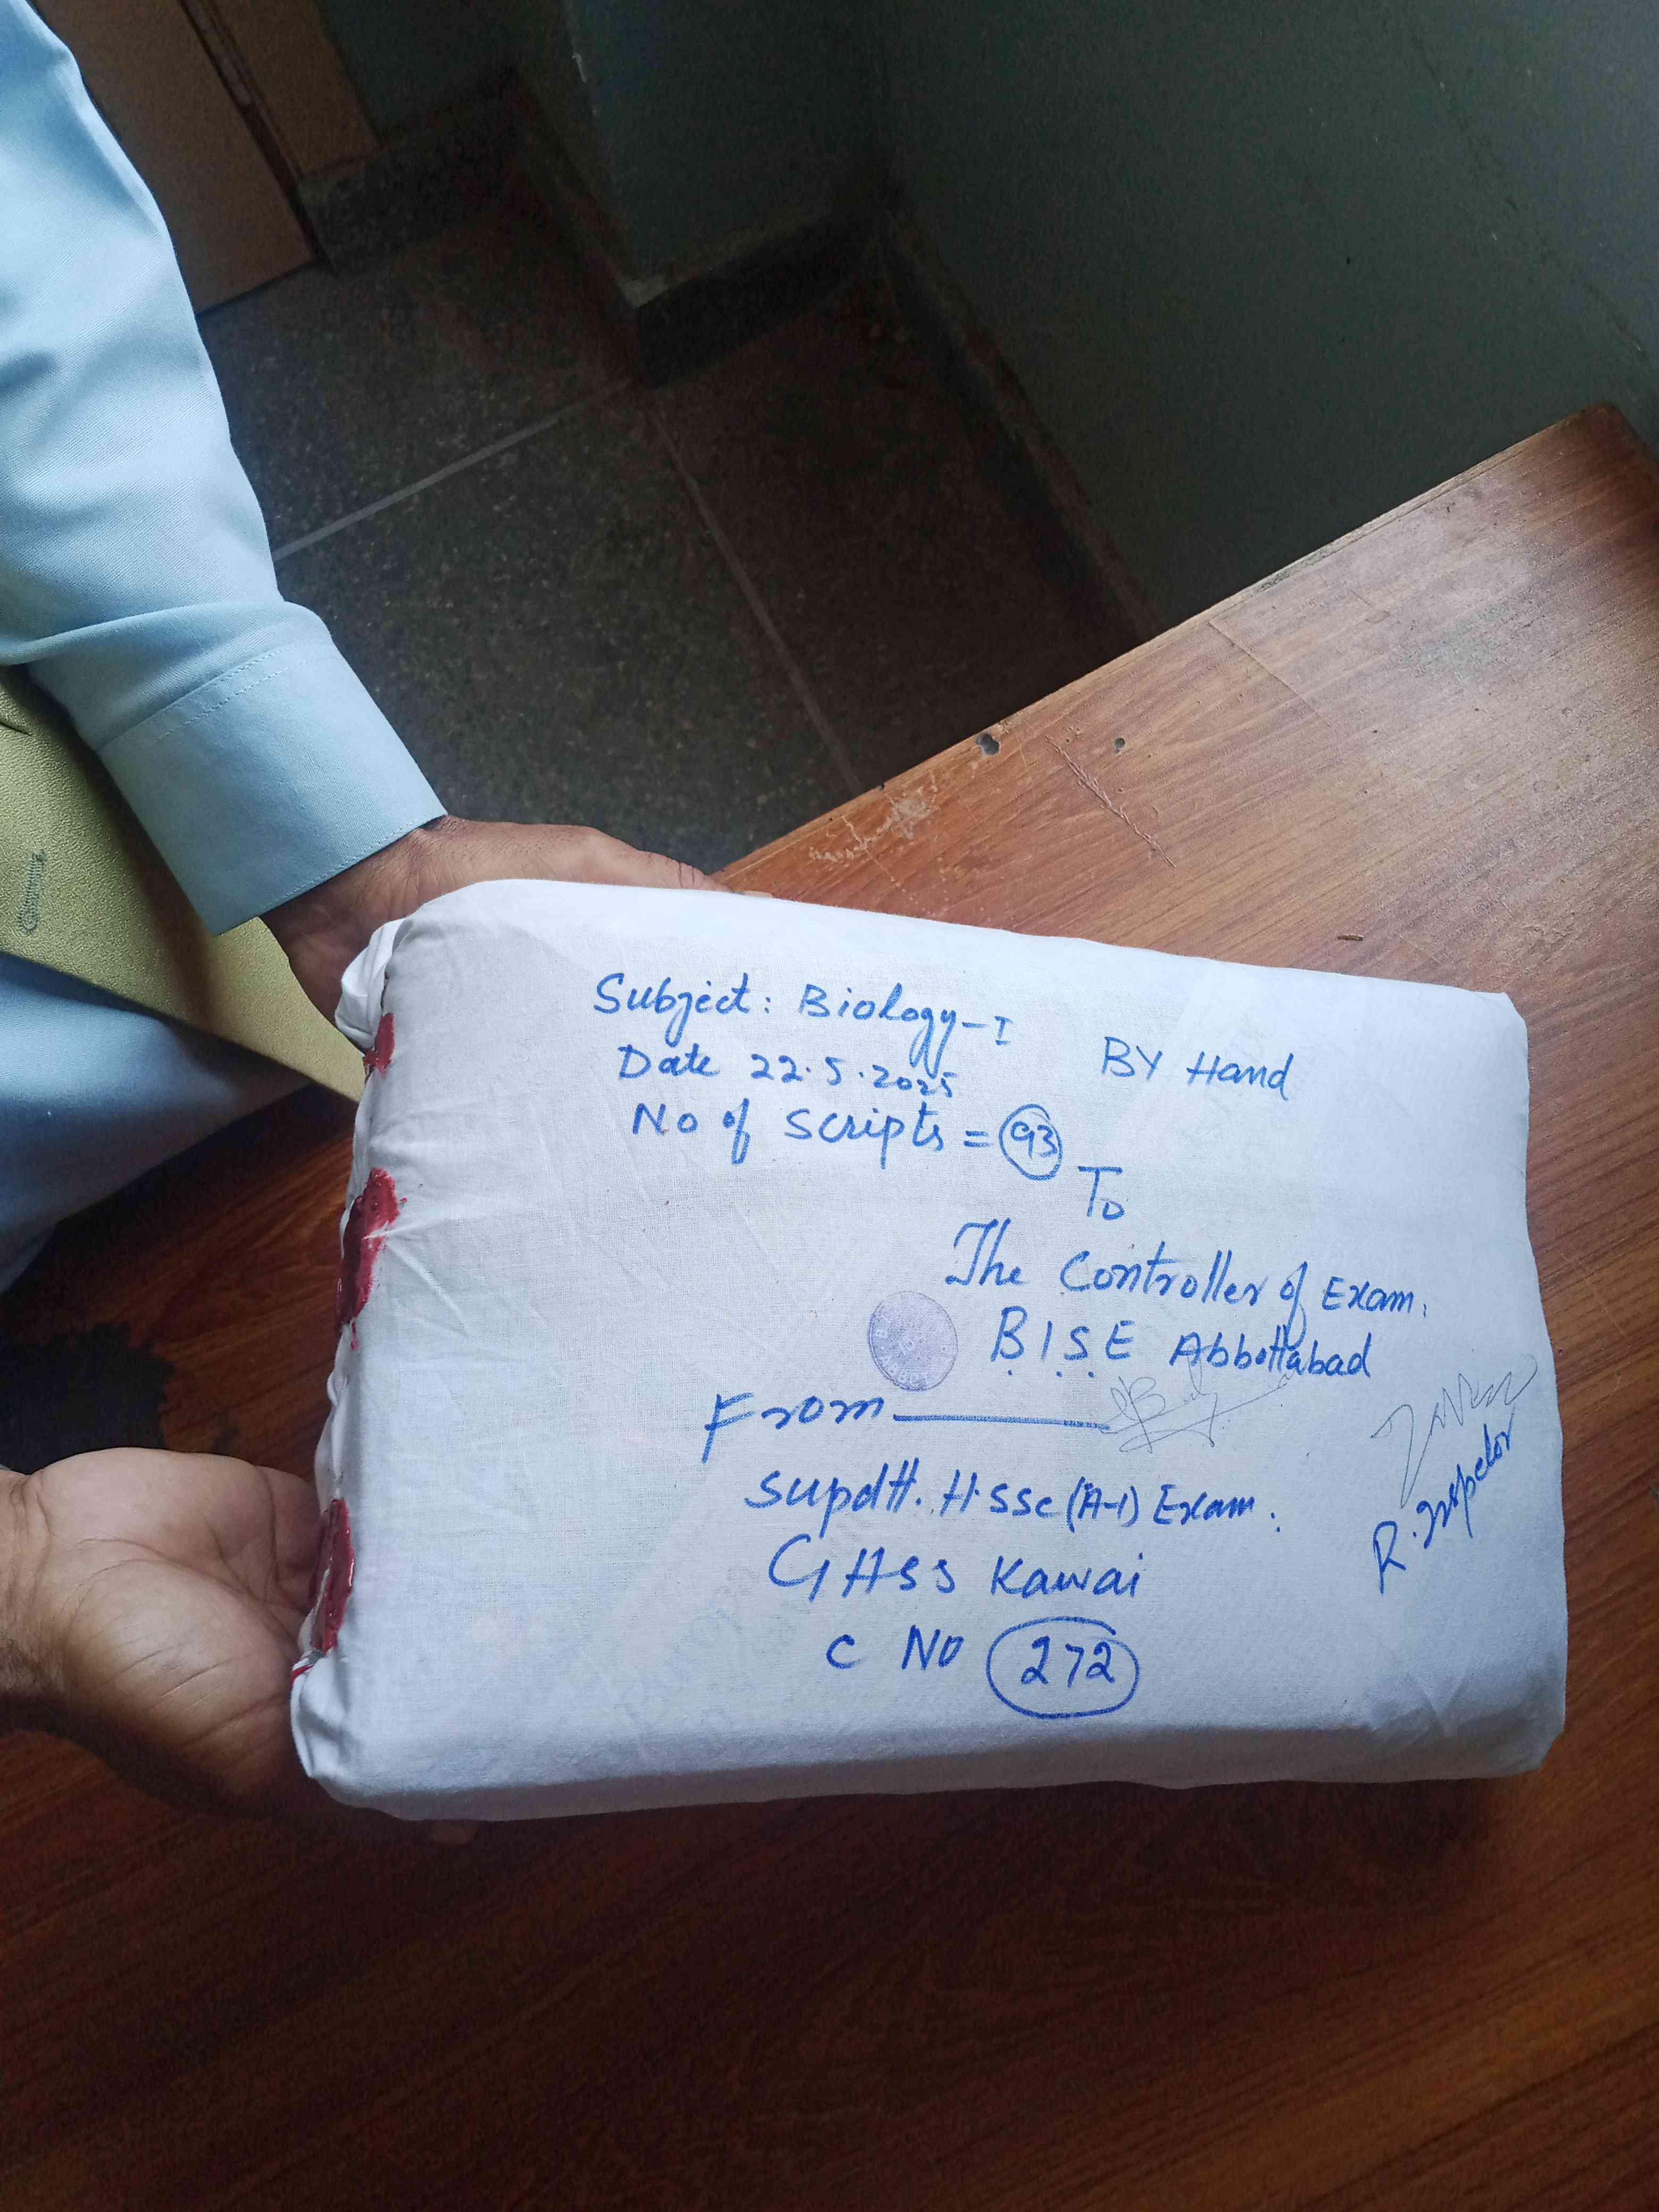 Subject: Biology-I
Date 22.5.2025
No of Scripts = 93
BY Hand
To
The Controller of Exam.
B.I.S.E Abbottabad
From
Supdtt. HSSC (A-I) Exam.
GHSS Kawai
C NO 272
R. Inspector